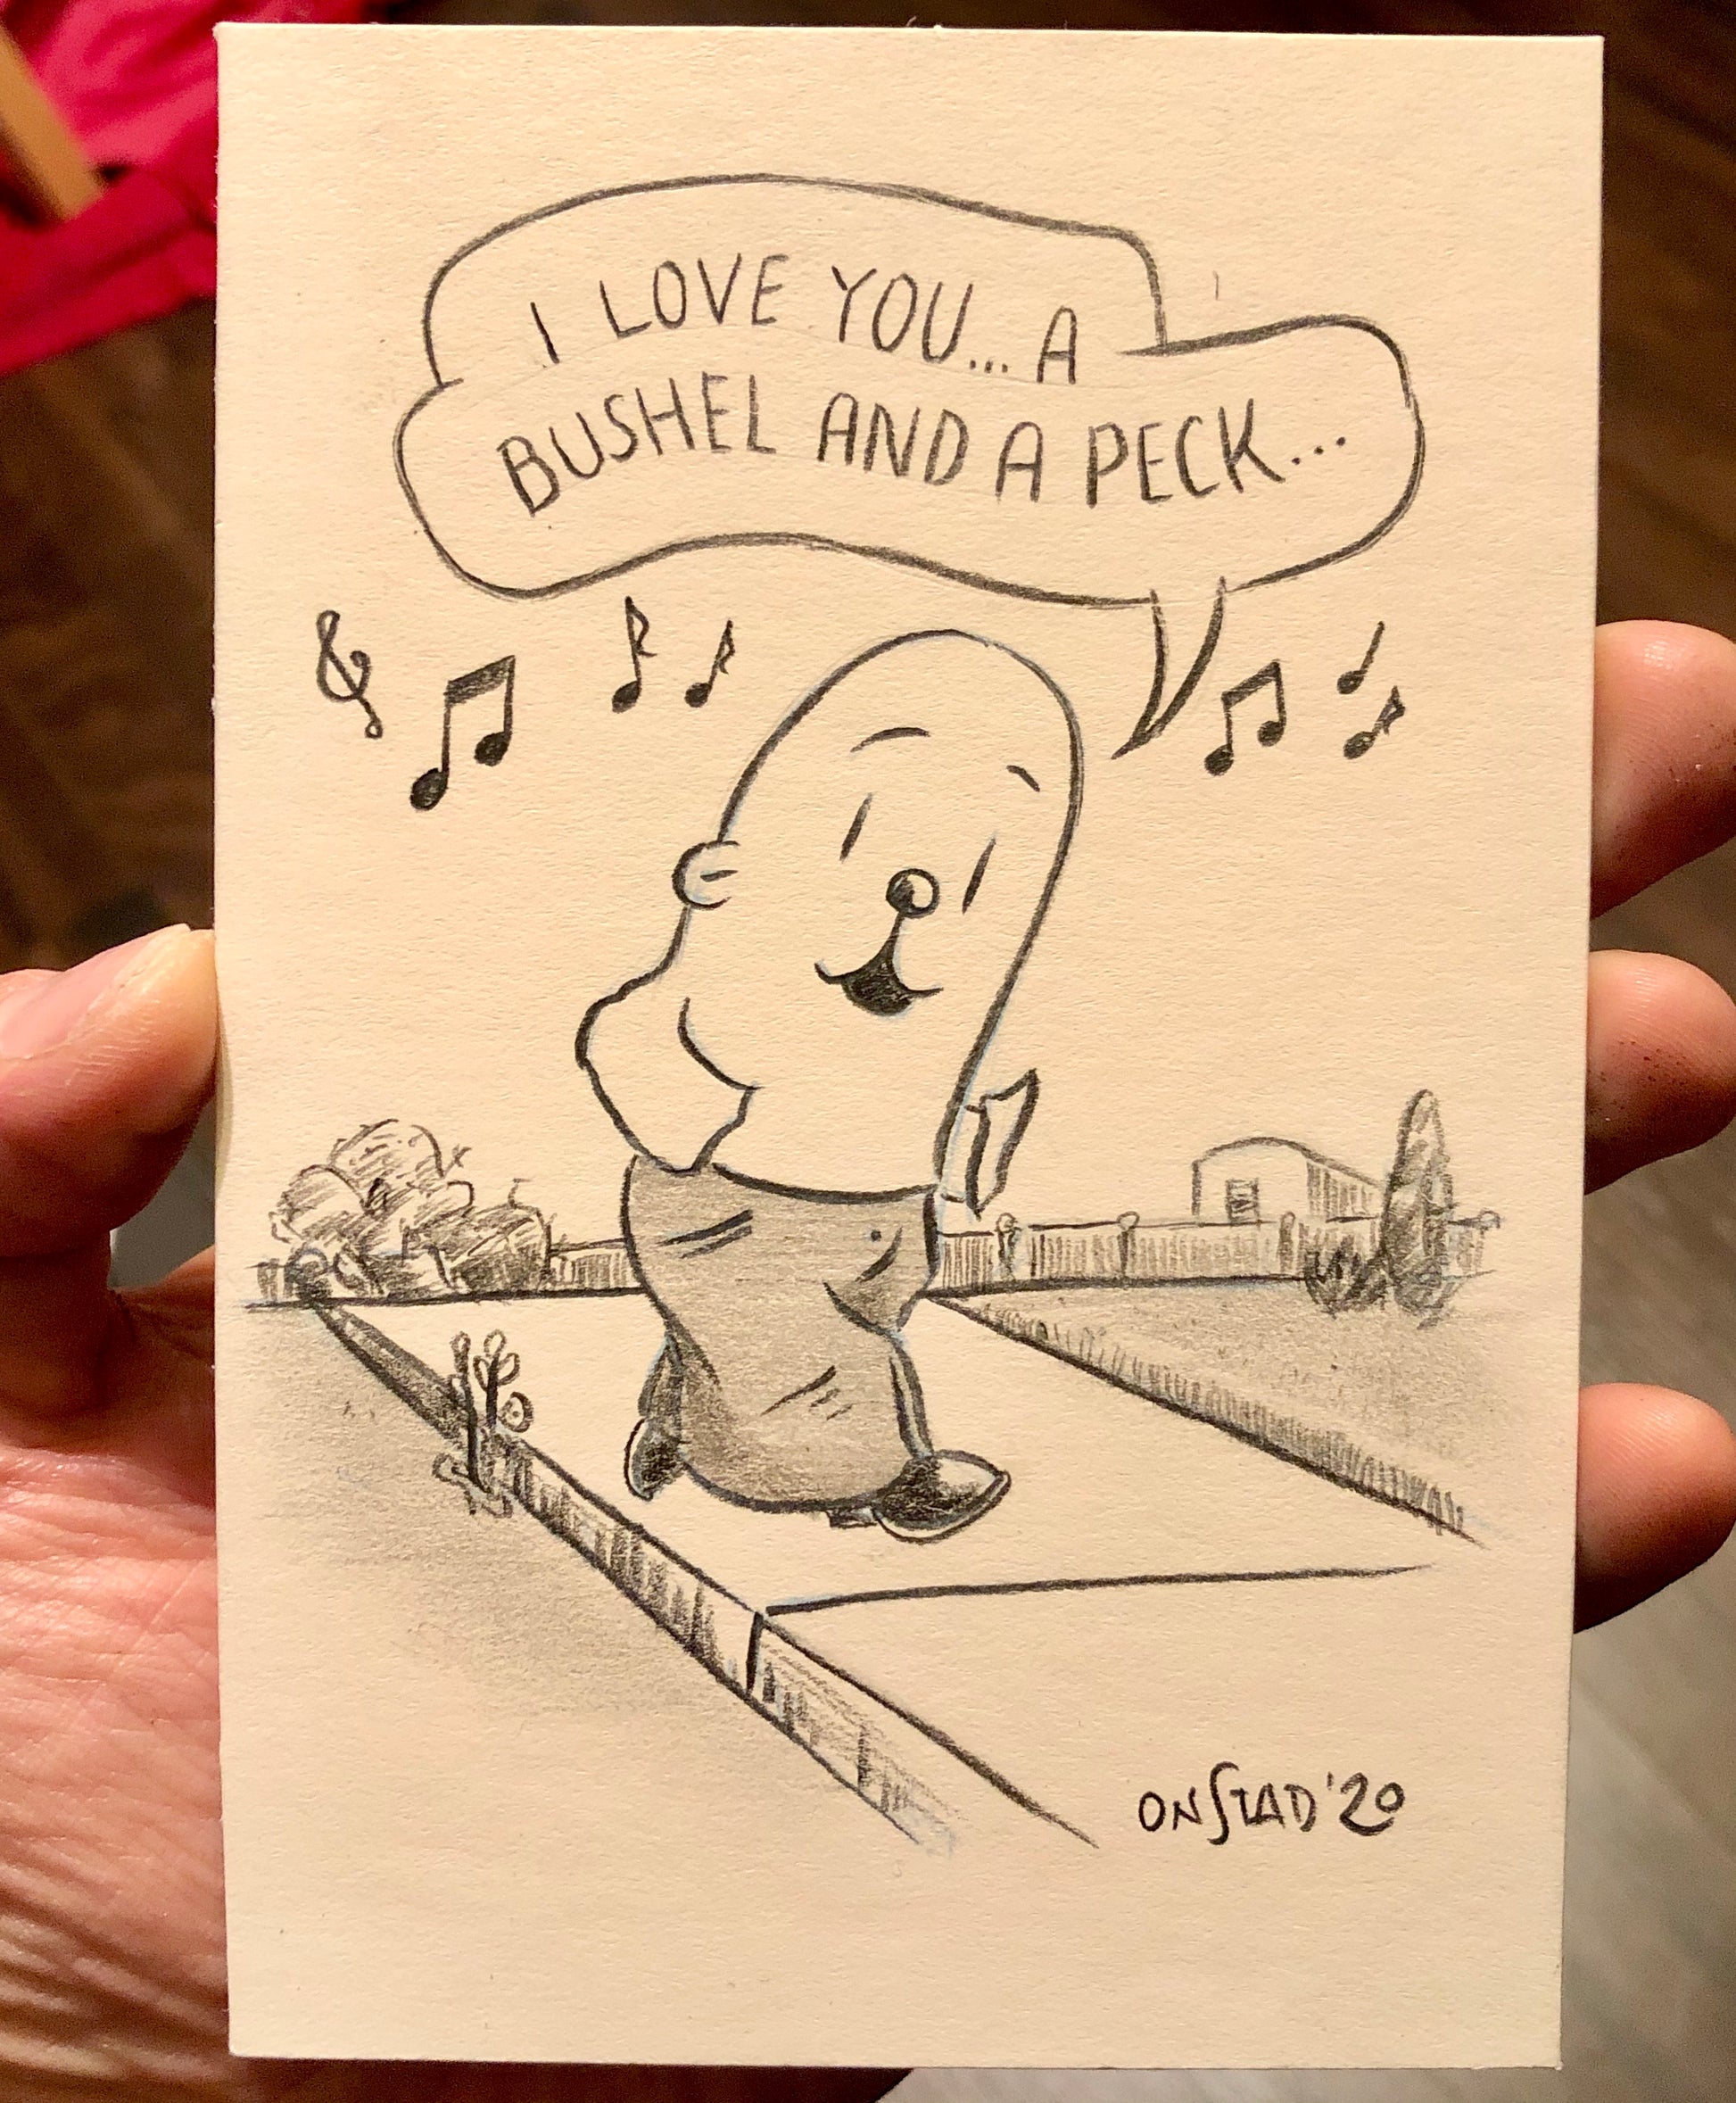 I LOVE YOU... A
BUSHEL AND A PECK...
ONSTAD '20